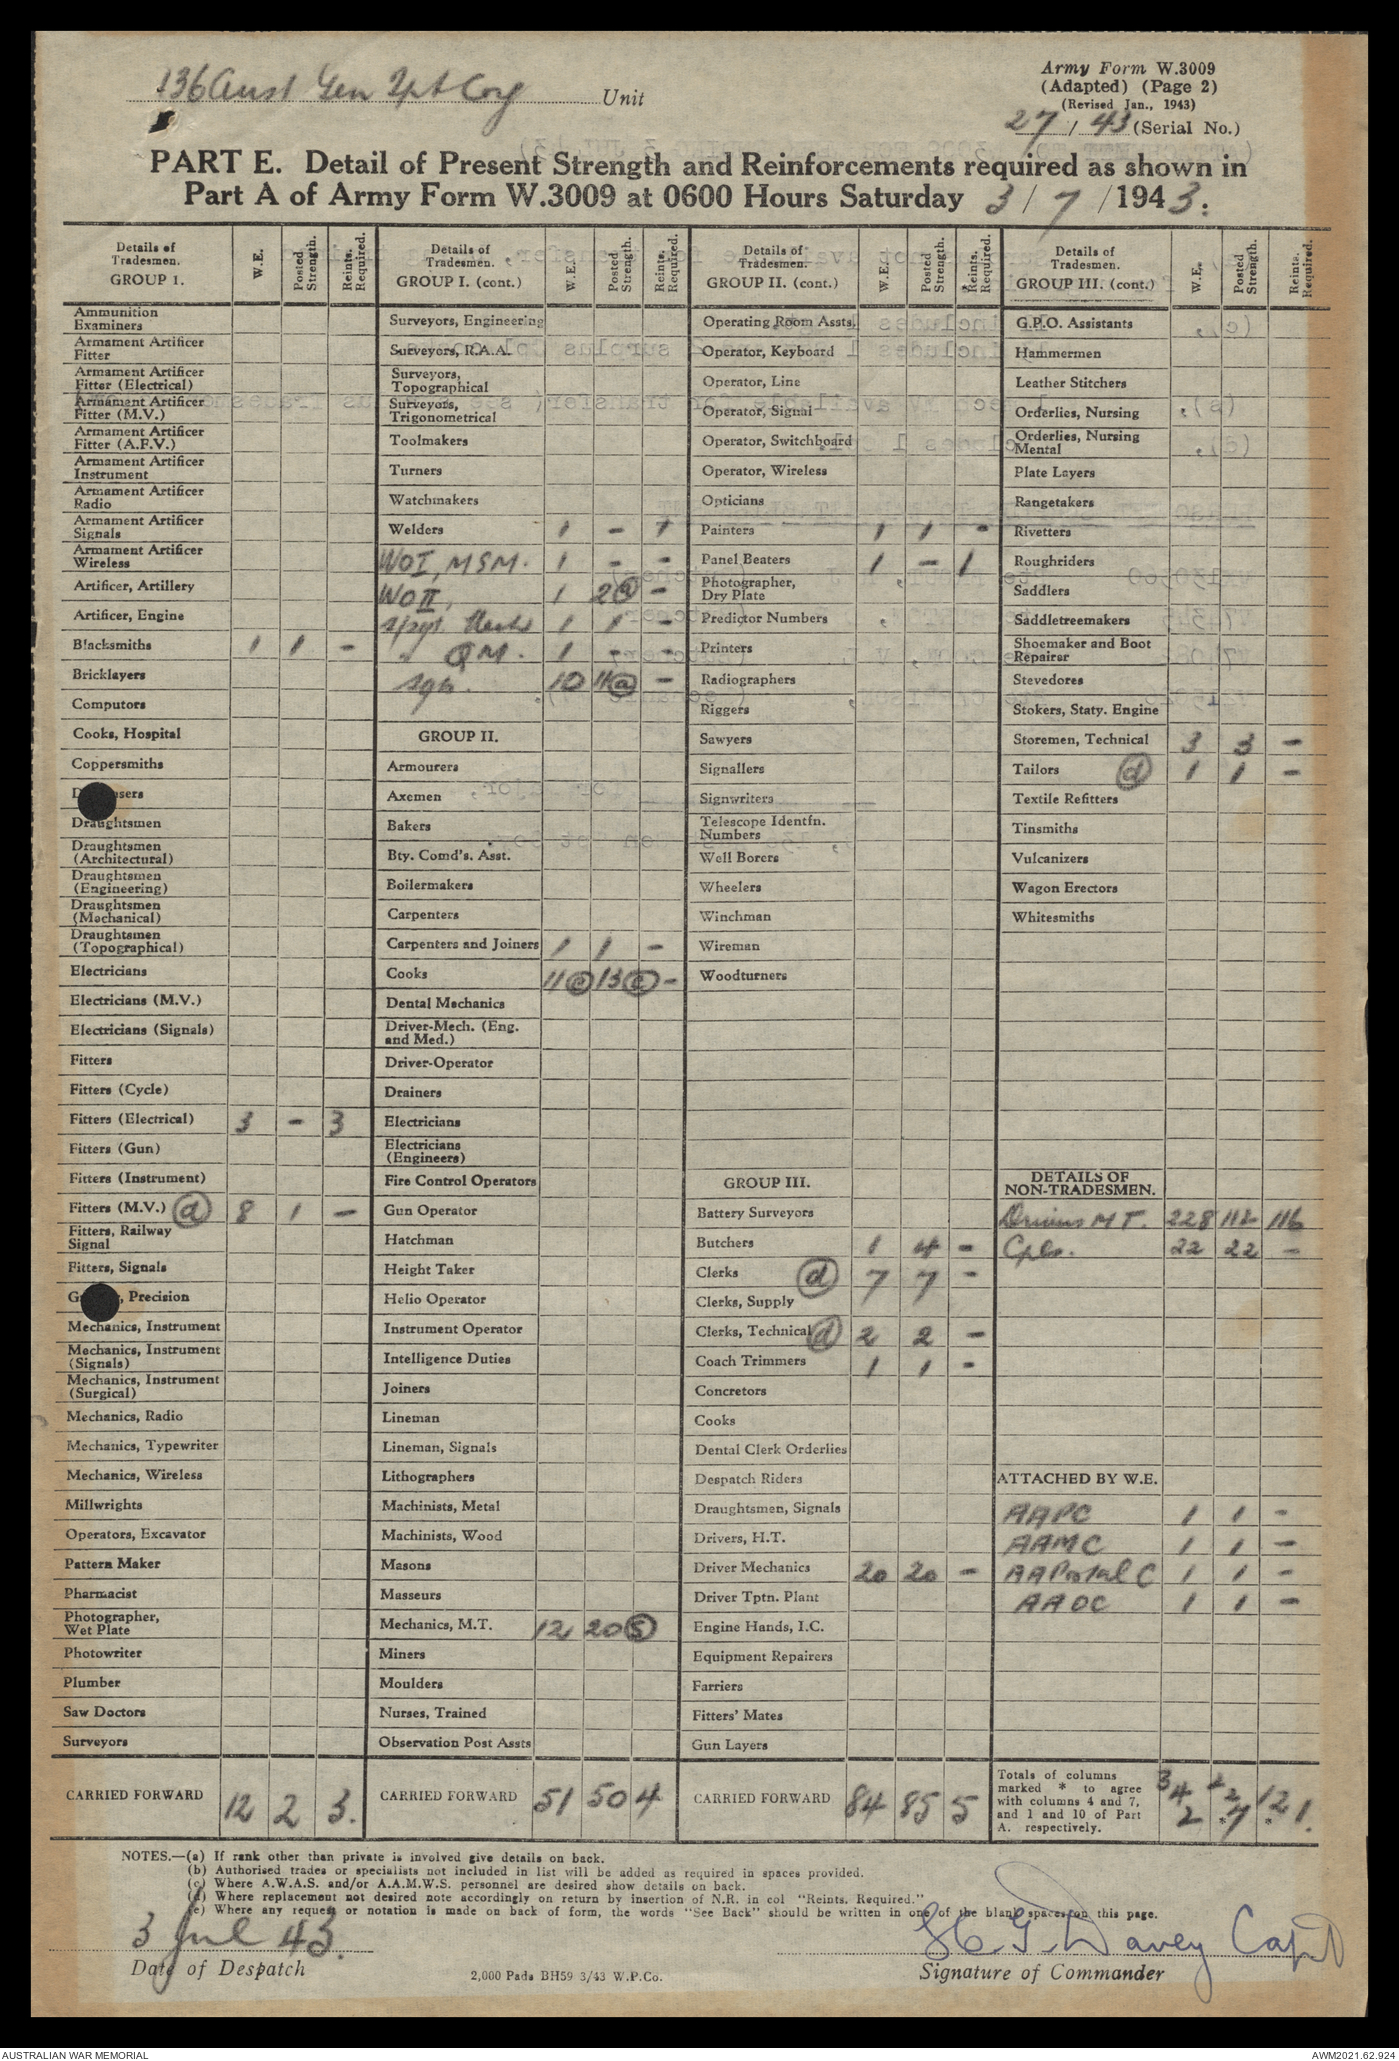 136 Aust Gen Tpt Coy Unit
Army Form W.3009
(Adapted) (Page 2)
(Revised Jan., 1943)
27 / 43 (Serial No.)
PART E. Detail of Present Strength and Reinforcements required as shown in
Part A of Army Form W.3009 at 0600 Hours Saturday 3 / 7 /1943.
Details of Tradesmen. GROUP I. W.E. Posted Strength. Reints. Required.
Ammunition Examiners
Armament Artificer Fitter
Armament Artificer Fitter (Electrical)
Armament Artificer Fitter (M.V.)
Armament Artificer Fitter (A.F.V.)
Armament Artificer Instrument
Armament Artificer Radio
Armament Artificer Signals
Armament Artificer Wireless
Artificer, Artillery
Artificer, Engine
Blacksmiths 1 1 -
Bricklayers
Computors
Cooks, Hospital
Coppersmiths
Draughtsmen
Draughtsmen (Architectural)
Draughtsmen (Engineering)
Draughtsmen (Mechanical)
Draughtsmen (Topographical)
Electricians
Electricians (M.V.)
Electricians (Signals)
Fitters
Fitters (Cycle)
Fitters (Electrical) 3 - 3
Fitters (Gun)
Fitters (Instrument)
Fitters (M.V.) (d) 8 1 -
Fitters, Railway Signal
Fitters, Signals
, Precision
Mechanics, Instrument
Mechanics, Instrument (Signals)
Mechanics, Instrument (Surgical)
Mechanics, Radio
Mechanics, Typewriter
Mechanics, Wireless
Millwrights
Operators, Excavator
Pattern Maker
Pharmacist
Photographer, Wet Plate
Photowriter
Plumber
Saw Doctors
Surveyors
CARRIED FORWARD 12 2 3.
Details of Tradesmen. GROUP I. (cont.) W.E. Posted Strength. Reints. Required.
Surveyors, Engineering
Surveyors, R.A.A.
Surveyors, Topographical
Surveyors, Trigonometrical
Toolmakers
Turners
Watchmakers
Welders 1 - 1
WOI, MSM. 1 - -
WOII, 1 2(a) -
S/Sgt. Mech 1 1 -
" QM. 1 - -
Sgts. 10 11(a) -
GROUP II.
Armourers
Axemen
Bakers
Bty. Comd's. Asst.
Boilermakers
Carpenters
Carpenters and Joiners 1 1 -
Cooks 11(e) 13(e) -
Dental Mechanics
Driver-Mech. (Eng. and Med.)
Driver-Operator
Drainers
Electricians
Electricians (Engineers)
Fire Control Operators
Gun Operator
Hatchman
Height Taker
Helio Operator
Instrument Operator
Intelligence Duties
Joiners
Lineman
Lineman, Signals
Lithographers
Machinists, Metal
Machinists, Wood
Masons
Masseurs
Mechanics, M.T. 12 20 (S)
Miners
Moulders
Nurses, Trained
Observation Post Assts
CARRIED FORWARD 51 50 4
Details of Tradesmen. GROUP II. (cont.) W.E. Posted Strength. Reints. Required.
Operating Room Assts.
Operator, Keyboard
Operator, Line
Operator, Signal
Operator, Switchboard
Operator, Wireless
Opticians
Painters 1 1 -
Panel Beaters 1 - 1
Photographer, Dry Plate
Predictor Numbers
Printers
Radiographers
Riggers
Sawyers
Signallers
Signwriters
Telescope Identfn. Numbers
Well Borers
Wheelers
Winchman
Wireman
Woodturners
GROUP III.
Battery Surveyors
Butchers 1 4 -
Clerks (d) 7 7 -
Clerks, Supply
Clerks, Technical (d) 2 2 -
Coach Trimmers 1 1 -
Concretors
Cooks
Dental Clerk Orderlies
Despatch Riders
Draughtsmen, Signals
Drivers, H.T.
Driver Mechanics 20 20 -
Driver Tptn. Plant
Engine Hands, I.C.
Equipment Repairers
Farriers
Fitters' Mates
Gun Layers
CARRIED FORWARD 84 85 5
Details of Tradesmen. GROUP III. (cont.) W.E. Posted Strength. Reints. Required.
G.P.O. Assistants
Hammermen
Leather Stitchers
Orderlies, Nursing
Orderlies, Nursing Mental
Plate Layers
Rangetakers
Rivetters
Roughriders
Saddlers
Saddletreemakers
Shoemaker and Boot Repairer
Stevedores
Stokers, Staty. Engine
Storemen, Technical 3 3 -
Tailors (d) 1 1 -
Textile Refitters
Tinsmiths
Vulcanizers
Wagon Erectors
Whitesmiths
DETAILS OF NON-TRADESMEN.
Drivers M T. 228 112 116
Cpls. 22 22 -
ATTACHED BY W.E.
AAPC 1 1 -
AAMC 1 1 -
AAPostal C 1 1 -
AAOC 1 1 -
Totals of columns marked * to agree with columns 4 and 7, and 1 and 10 of Part A. respectively. 342 227 121.
NOTES.—(a) If rank other than private is involved give details on back.
(b) Authorised trades or specialists not included in list will be added as required in spaces provided.
(c) Where A.W.A.S. and/or A.A.M.W.S. personnel are desired show details on back.
(d) Where replacement not desired note accordingly on return by insertion of N.R. in col "Reints. Required."
(e) Where any request or notation is made on back of form, the words "See Back" should be written in one of the blank spaces on this page.
3 Jul 43.
Date of Despatch
2,000 Pads BH59 3/43 W.P.Co.
G. Davey Capt
Signature of Commander
AUSTRALIAN WAR MEMORIAL
AWM2021.62.924